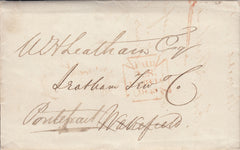 W H Leatham Esq
Leatham Tew & Co
Pontefract Wakefield
PAID